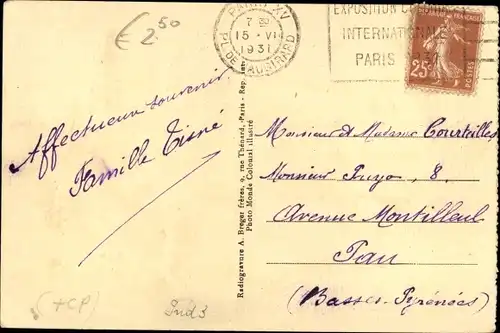 € 2.50
PARIS XV
7 30
15 - VI
1931
PL. DE VAUGIRARD
EXPOSITION COLONIALE
INTERNATIONALE
PARIS 1931
25c
POSTES
Affectueux souvenir
Famille Tisné
Radiogravure A. Breger frères, 9, rue Thénard, Paris - Rep. Int.
Photo Monde Colonial illustré
Monsieur et Madame Courteilles
Monsieur Puyo, 8,
Avenue Montilleul
Pau
(Basses-Pyrénées)
(+CP)
Ind 3